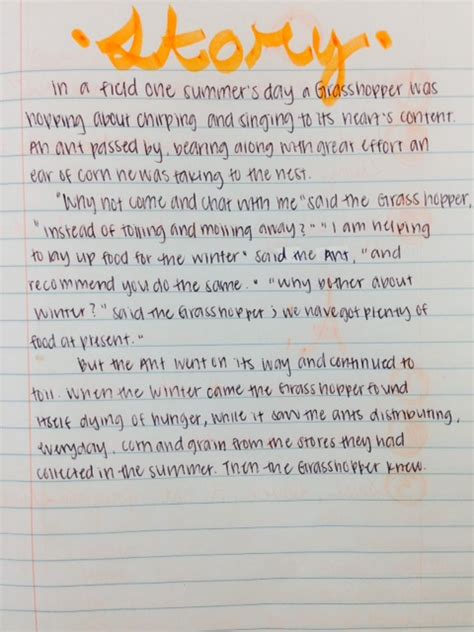 ·story·
In a field one summer's day a Grasshopper was
hopping about chirping and singing to its heart's content.
An ant passed by, bearing along with great effort an
ear of corn he was taking to the nest.
"Why not come and chat with me" said the Grasshopper,
"instead of toiling and moiling away?" "I am helping
to lay up food for the winter" said the Ant, "and
recommend you do the same." "Why bother about
winter?" said the Grasshopper; we have got plenty of
food at present."
But the Ant went on its way and continued to
toil. When the winter came the Grasshopper found
itself dying of hunger, while it saw the ants distributing,
everyday, corn and grain from the stores they had
collected in the summer. Then the Grasshopper knew.